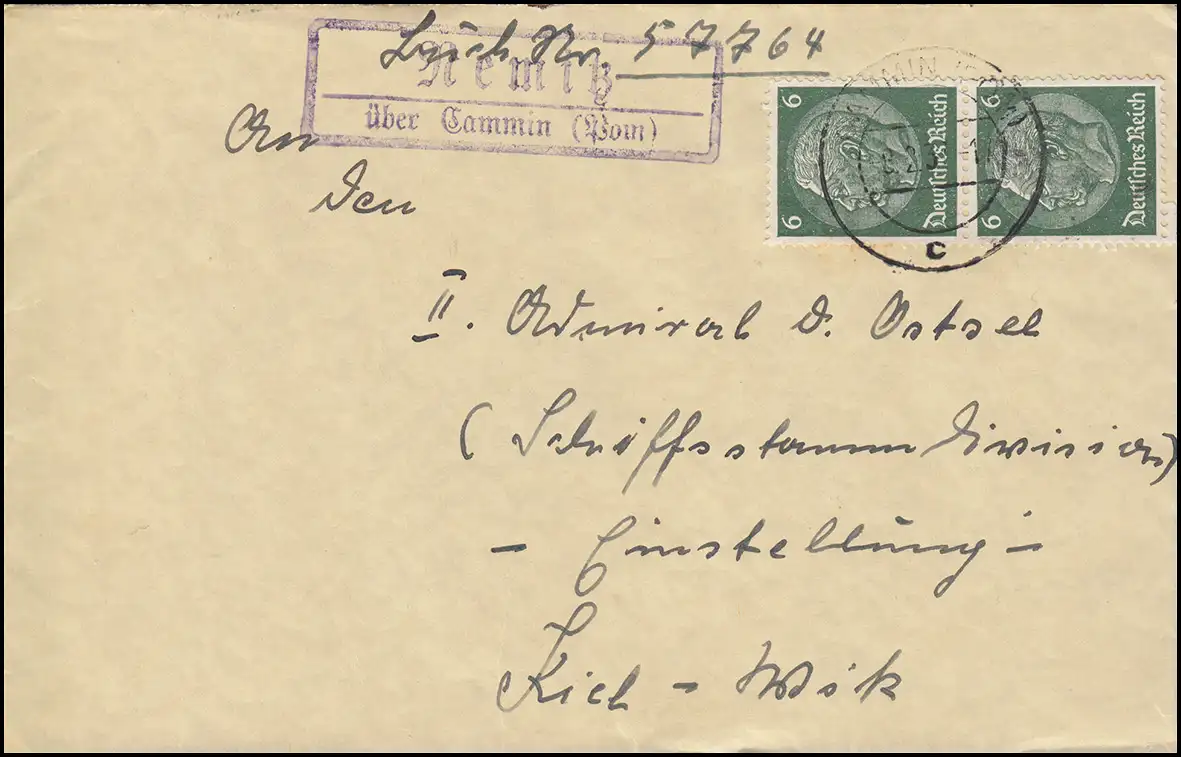 Nr. 57764
Nemitz
über Cammin (Pom)
An
den
II. Admiral d. Ostsee
(Schiffsstammdivision)
- Einstellung -
Kiel - Wik
6 Deutsches Reich
6 Deutsches Reich
CAMMIN (POM)
c